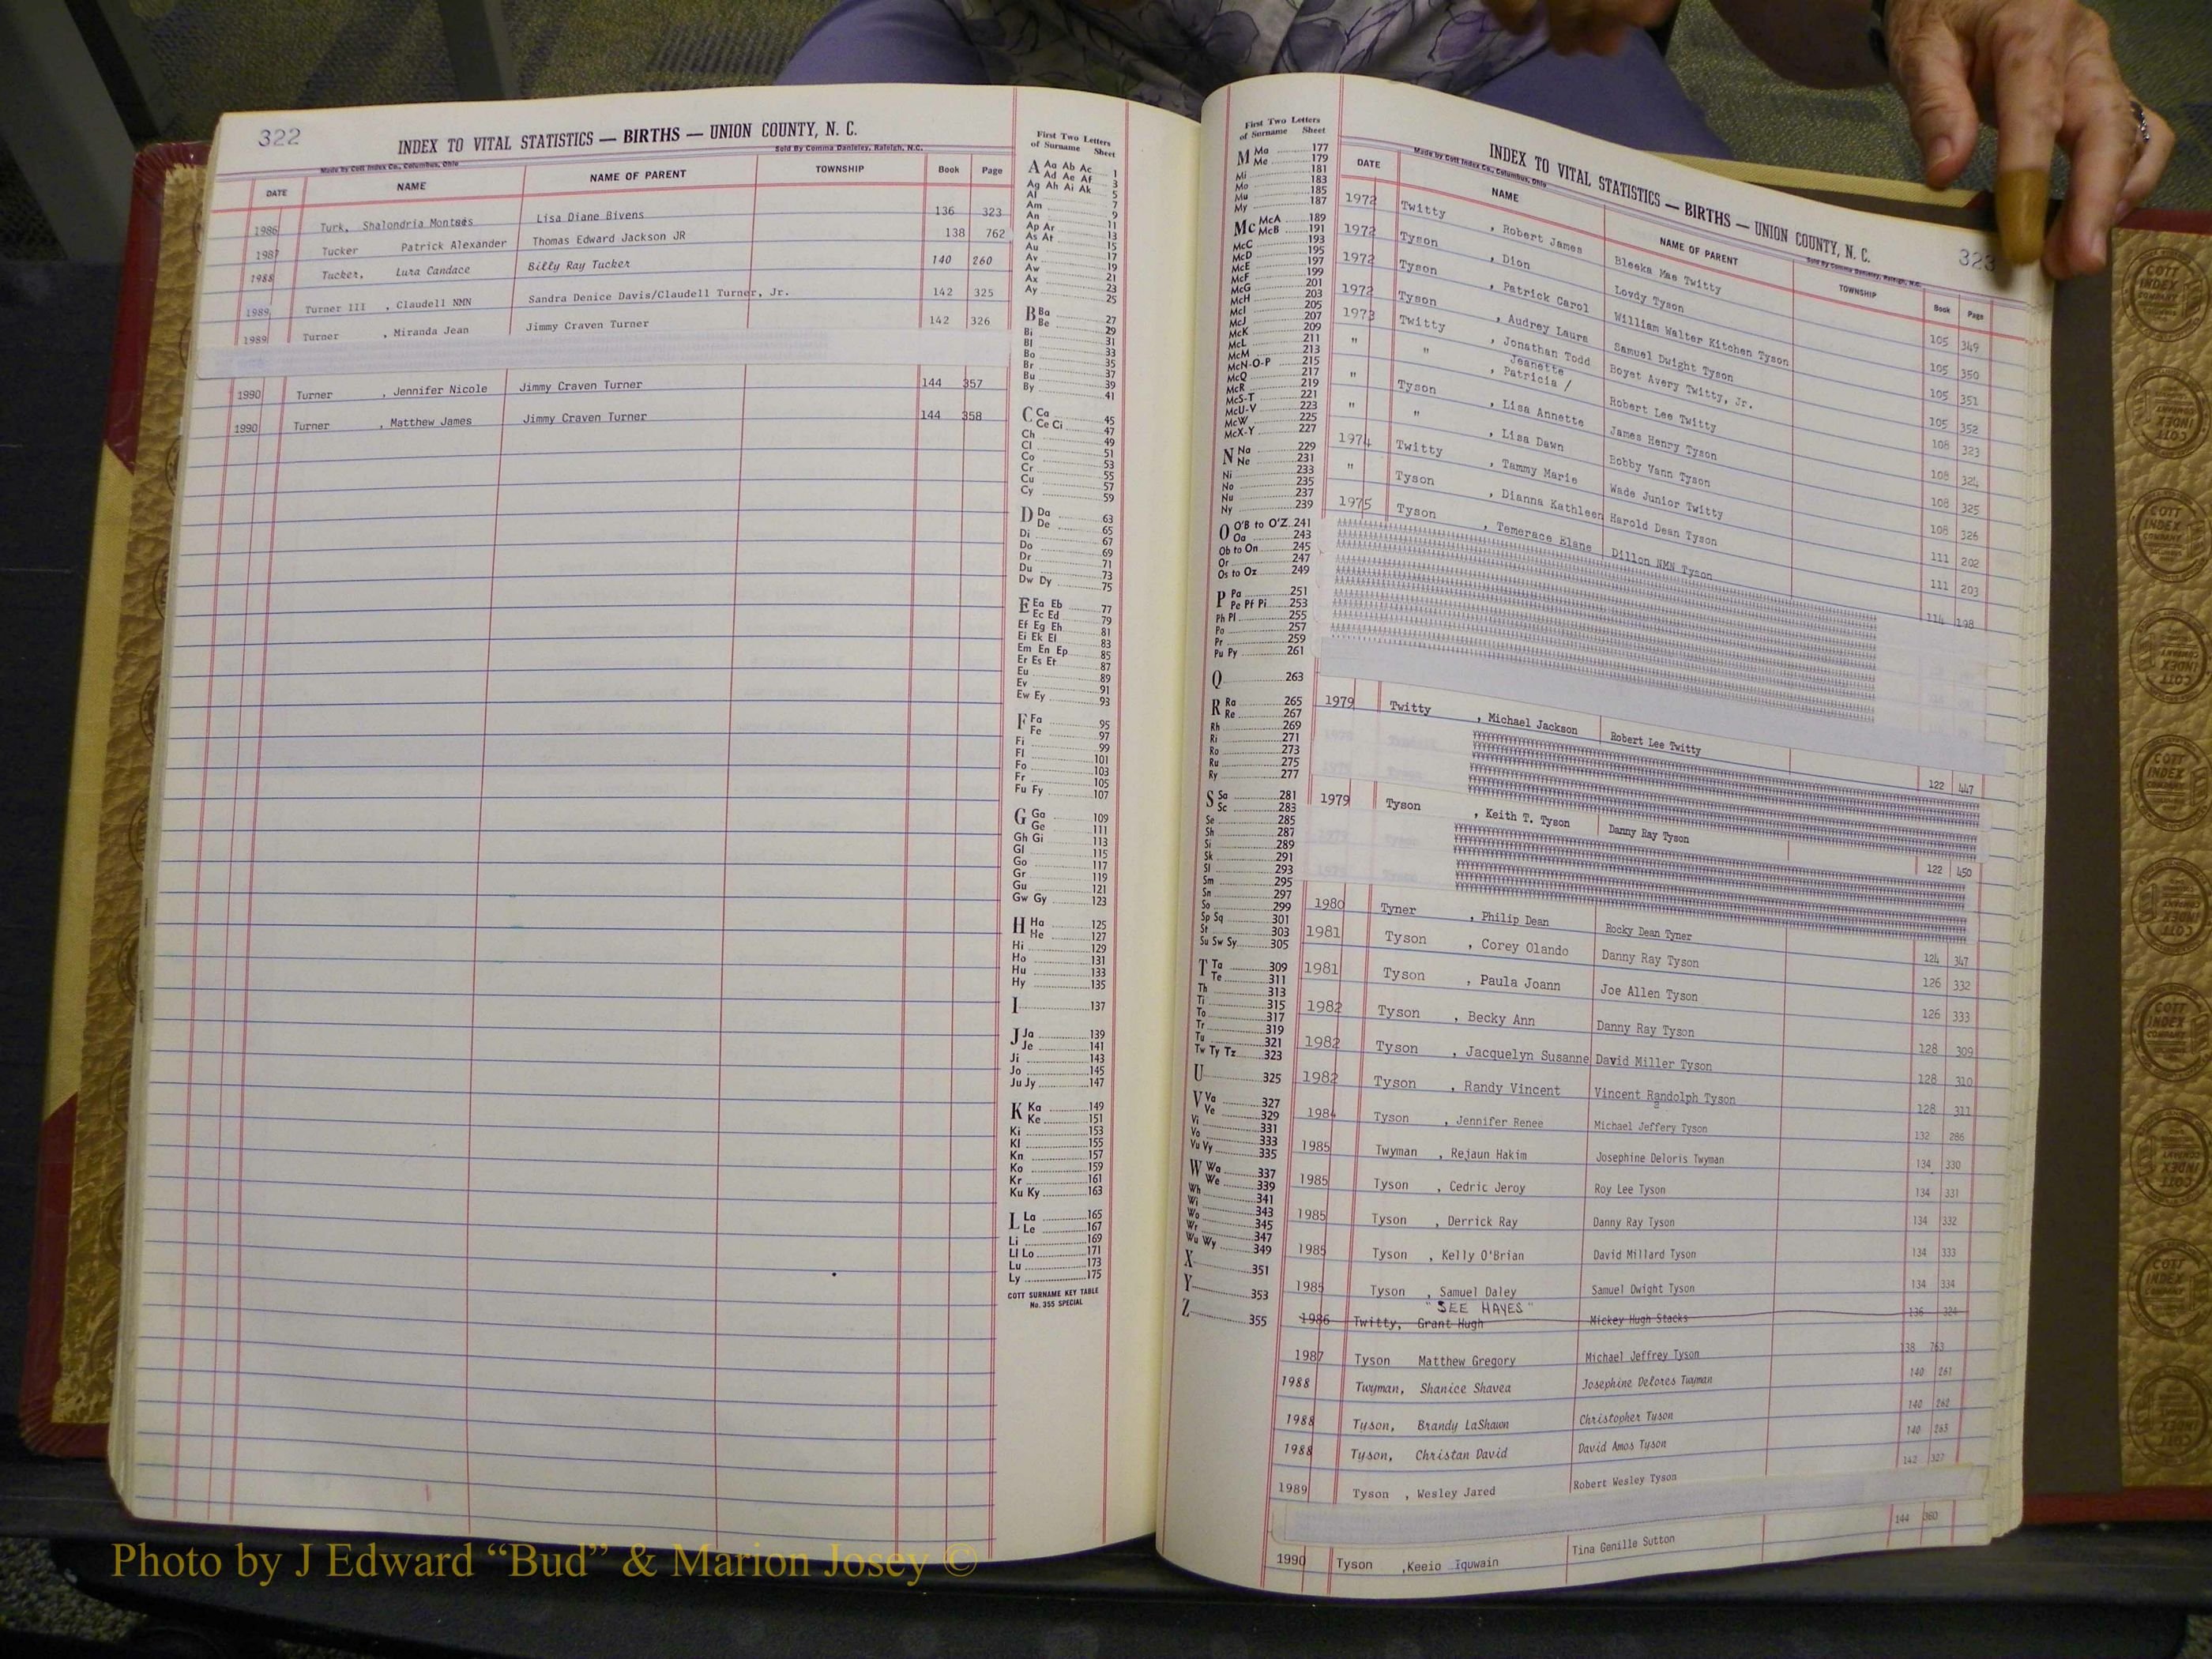 322
INDEX TO VITAL STATISTICS — BIRTHS — UNION COUNTY, N. C.
Made by Cott Index Co., Columbus, Ohio
Sold By Comma Danieley, Raleigh, N.C.
DATE NAME NAME OF PARENT TOWNSHIP Book Page
1986 Turk, Shalondria Lisa Diane Bivens 136 323
1987 Tucker Patrick Alexander Thomas Edward Jackson JR 138 762
1988 Tucker, Lura Candace Billy Ray Tucker 140 260
1989 Turner III , Claudell NMN Sandra Denice Davis/Claudell Turner, Jr. 142 325
1989 Turner , Miranda Jean Jimmy Craven Turner 142 326
1990 Turner , Jennifer Nicole Jimmy Craven Turner 144 357
1990 Turner , Matthew James Jimmy Craven Turner 144 358
First Two Letters
of Surname Sheet
A Aa Ab Ac 1
Ad Ae Af 3
Ag Ah Ai Ak 5
Al 7
Am 9
An 11
Ap Ar 13
As At 15
Au 17
Av 19
Aw 21
Ax 23
Ay 25
B Ba 27
Be 29
Bi 31
Bl 33
Bo 35
Br 37
Bu 39
By 41
C Ca 45
Ce Ci 47
Ch 49
Cl 51
Co 53
Cr 55
Cu 57
Cy 59
D Da 63
De 65
Di 67
Do 69
Dr 71
Du 73
Dw Dy 75
E Ea Eb 77
Ec Ed 79
Ef Eg Eh 81
Ei Ek El 83
Em En Ep 85
Er Es Et 87
Eu 89
Ev 91
Ew Ey 93
F Fa 95
Fe 97
Fi 99
Fl 101
Fo 103
Fr 105
Fu Fy 107
G Ga 109
Ge 111
Gh Gi 113
Gl 115
Go 117
Gr 119
Gu 121
Gw Gy 123
H Ha 125
He 127
Hi 129
Ho 131
Hu 133
Hy 135
I 137
J Ja 139
Je 141
Ji 143
Jo 145
Ju Jy 147
K Ka 149
Ke 151
Ki 153
Kl 155
Kn 157
Ko 159
Kr 161
Ku Ky 163
L La 165
Le 167
Li 169
Ll Lo 171
Lu 173
Ly 175
COTT SURNAME KEY TABLE
No. 355 SPECIAL
First Two Letters
of Surname Sheet
M Ma 177
Me 179
Mi 181
Mo 183
Mu 185
My 187
Mc McA 189
McB 191
McC 193
McD 195
McE 197
McF 199
McG 201
McH 203
McI 205
McJ 207
McK 209
McL 211
McM 213
McN-O-P 215
McQ 217
McR 219
McS-T 221
McU-V 223
McW 225
McX-Y 227
N Na 229
Ne 231
Ni 233
No 235
Nu 237
Ny 239
O O'B to O'Z 241
Oa 243
Ob to On 245
Or 247
Os to Oz 249
P Pa 251
Pe Pf Pi 253
Ph Pl 255
Po 257
Pr 259
Pu Py 261
Q 263
R Ra 265
Re 267
Rh 269
Ri 271
Ro 273
Ru 275
Ry 277
S Sa 281
Sc 283
Se 285
Sh 287
Si 289
Sk 291
Sl 293
Sm 295
Sn 297
So 299
Sp Sq 301
St 303
Su Sw Sy 305
T Ta 309
Te 311
Th 313
Ti 315
To 317
Tr 319
Tu 321
Tw Ty Tz 323
U 325
V Va 327
Ve 329
Vi 331
Vo 333
Vu Vy 335
W Wa 337
We 339
Wh 341
Wi 343
Wo 345
Wr 347
Wu Wy 349
X 351
Y 353
Z 355
INDEX TO VITAL STATISTICS — BIRTHS — UNION COUNTY, N. C.
323
Made by Cott Index Co., Columbus, Ohio
Sold By Comma Danieley, Raleigh, N.C.
DATE NAME NAME OF PARENT TOWNSHIP Book Page
1972 Twitty , Robert James Bleeka Mae Twitty 105 349
1972 Tyson , Dion Lovdy Tyson 105 350
1972 Tyson , Patrick Carol William Walter Kitchen Tyson 105 351
1972 Tyson , Audrey Laura Samuel Dwight Tyson 105 352
1973 Twitty , Jonathan Todd Boyet Avery Twitty, Jr. 108 323
Jeanette
" " , Patricia / Robert Lee Twitty 108 324
" Tyson , Lisa Annette James Henry Tyson 108 325
" " , Lisa Dawn Bobby Vann Tyson 108 326
1974 Twitty , Tammy Marie Wade Junior Twitty 111 202
" Tyson , Dianna Kathleen Harold Dean Tyson 111 203
1975 Tyson , Temerace Elane Dillon NMN Tyson 114 198
1979 Twitty , Michael Jackson Robert Lee Twitty 122 447
1979 Tyson , Keith T. Tyson Danny Ray Tyson 122 450
1980 Tyner , Philip Dean Rocky Dean Tyner 124 347
1981 Tyson , Corey Olando Danny Ray Tyson 126 332
1981 Tyson , Paula Joann Joe Allen Tyson 126 333
1982 Tyson , Becky Ann Danny Ray Tyson 128 309
1982 Tyson , Jacquelyn Susanne David Miller Tyson 128 310
1982 Tyson , Randy Vincent Vincent Randolph Tyson 128 311
1984 Tyson , Jennifer Renee Michael Jeffery Tyson 132 286
1985 Twyman , Rejaun Hakim Josephine Deloris Twyman 134 330
1985 Tyson , Cedric Jeroy Roy Lee Tyson 134 331
1985 Tyson , Derrick Ray Danny Ray Tyson 134 332
1985 Tyson , Kelly O'Brian David Millard Tyson 134 333
1985 Tyson , Samuel Daley Samuel Dwight Tyson 134 334
"SEE HAYES"
1986 Twitty, Grant Hugh Mickey Hugh Stacks 136 324
1987 Tyson Matthew Gregory Michael Jeffrey Tyson 138 763
1988 Twyman, Shanice Shavea Josephine Delores Twyman 140 261
1988 Tyson, Brandy LaShawn Christopher Tyson 140 262
1988 Tyson, Christan David David Amos Tyson 140 263
1989 Tyson , Wesley Jared Robert Wesley Tyson 142 327
1990 Tyson ,Keeio Iquwain Tina Genille Sutton 144 360
Photo by J Edward “Bud” & Marion Josey ©